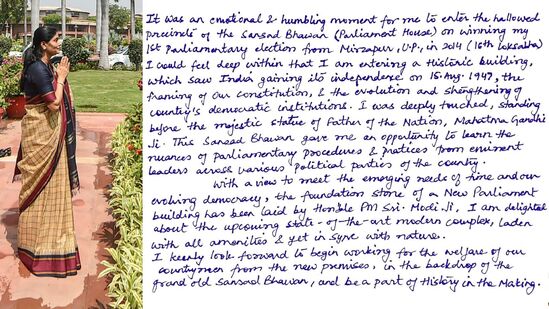 It was an emotional & humbling moment for me to enter the hallowed
precincts of the Sansad Bhawan (Parliament House) on winning my
1st Parliamentary election from Mirzapur, U.P., in 2014 (16th Loksabha)
I would feel deep within that I am entering a Historic building,
which saw India gaining its independence on 15 Aug. 1947, the
framing of our constitution, & the evolution and strengthening of
country's democratic institutions. I was deeply touched, standing
before the majestic statue of Father of the Nation, Mahatma Gandhi
Ji. This Sansad Bhawan gave me an opportunity to learn the
nuances of parliamentary procedures & pratices from eminent
leaders across various political parties of the country.
With a view to meet the emerging needs of time and our
evolving democracy, the foundation stone of a New Parliament
building has been laid by Honble PM Sri. Modi Ji, I am delighted
about the upcoming state-of-the-art modern complex, laden
with all amenities & yet in sync with nature.
I keenly look forward to begin working for the welfare of our
countrymen from the new premises, in the backdrop of the
grand old Sansad Bhawan, and be a part of History in the Making.